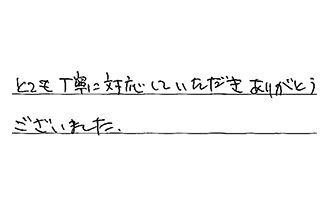 とても丁寧に対応していただきありがとう
ございました.